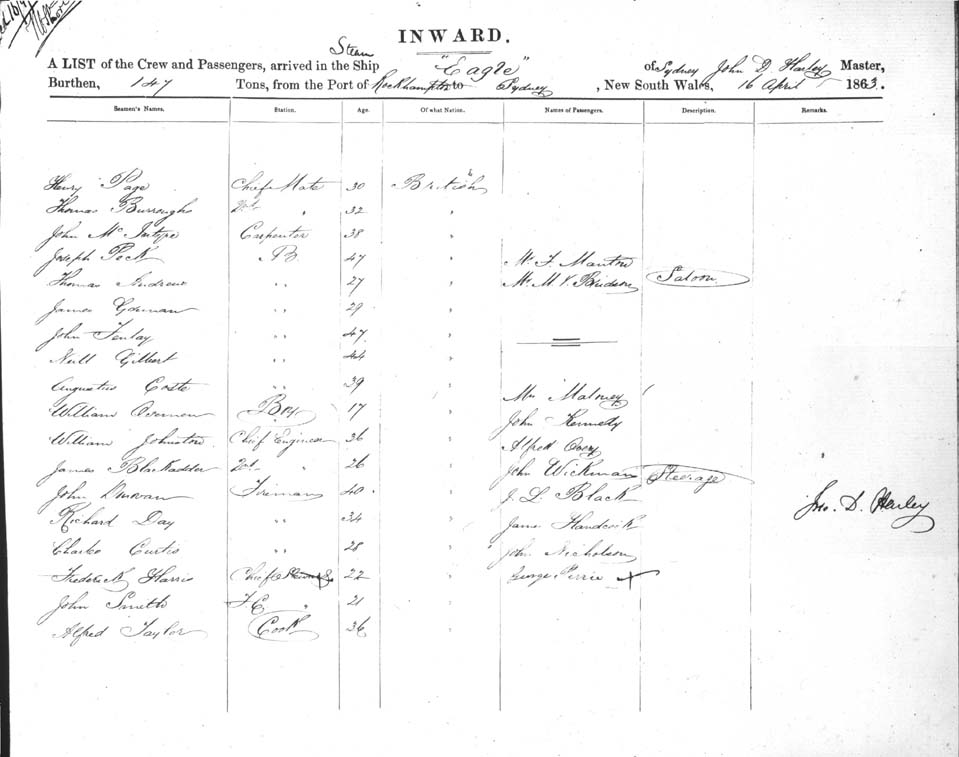 INWARD.
Steam
A LIST of the Crew and Passengers, arrived in the Ship "Eagle" of Sydney John D. Harley Master,
Burthen, 147 Tons, from the Port of Rockhampton to Sydney, New South Wales, 16 April 1863.
Seamen's Names. Station. Age. Of what Nation. Names of Passengers. Description. Remarks.
Henry Page Chief Mate 30 British
Thomas Burroughs 2nd " 32 "
John McIntyre Carpenter 38 "
Joseph Peck AB 47 " Mr. F. Manton
Thomas Andrew " 27 " Mr. M. V. Saloon
James Gorman " 29 "
John Finlay " 47 "
Gilbert " 44 "
Augustus Coste " 39 " Maloney
William Boy 17 " John Kennedy
William Johnston Chief Engineer 36 " Alfred
James Blackadder 2nd " 26 " John Wickman Steerage
John Donovan Fireman 40 " J. L. Black
Jno. D. Harley
Richard Day " 34 " James Handcock
Charles Curtis " 28 " John Nicholson
Frederick Harris Chief 22 " George Pirrie
John Smith " 21 "
Alfred Taylor Cook 36 "